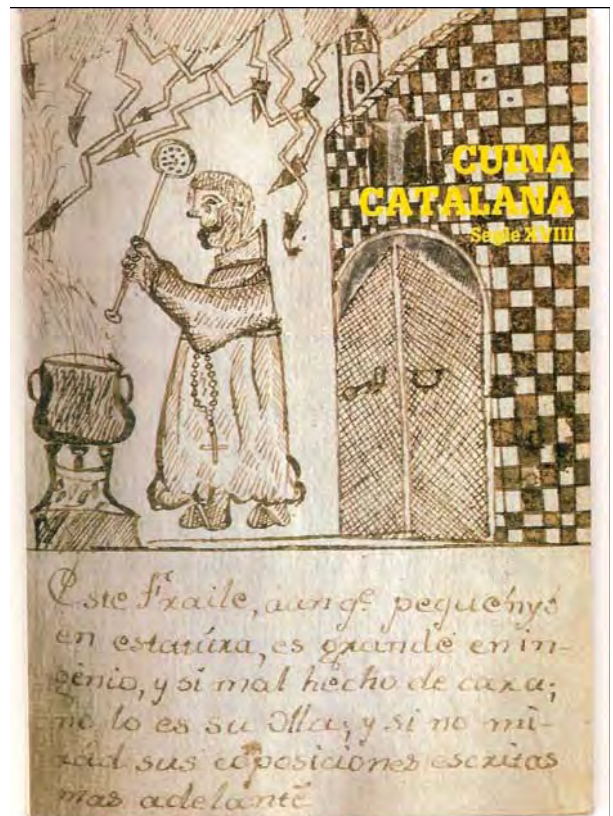 CUINA
CATALANA
Segle XVIII
Este Fraile, aunq.e pequeñyo
en estatúra, es grande en in-
genio, y si mal hecho de cara;
no lo es su Olla; y si no mi-
rad sus coposiciones escritas
mas adelante